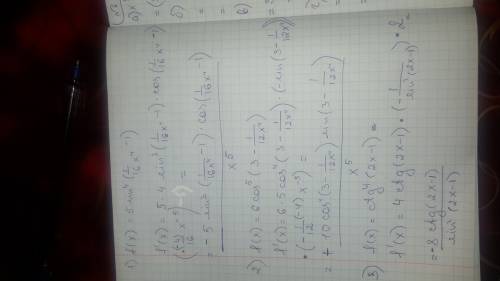 1) f(x) = 5 sin⁴(1/16 x⁻⁴ - 1)
f'(x) = 5 · 4 sin³(1/16 x⁻⁴ - 1) · cos(1/16 x⁻⁴ - 1)
=
= - 5 sin³(1/16 x⁻⁴ - 1) · cos(1/16 x⁻⁴ - 1)
x⁵
2) f(x) = 6 cos⁵(3 - 1/12x⁴)
f'(x) = 6 · 5 cos⁴(3 - 1/12x⁴) (- sin(3 - 1/12x⁴))
· (- 1/12 (-4) x⁻⁵) =
= + 10 cos⁴(3 - 1/12x⁴) sin(3 - 1/12x⁴)
x⁵
3) f(x) = ctg⁴(2x-1) =
f'(x) = 4 ctg(2x-1) · (- 1/sin²(2x-1)) · 2 =
= - 8 ctg(2x-1)
sin²(2x-1)